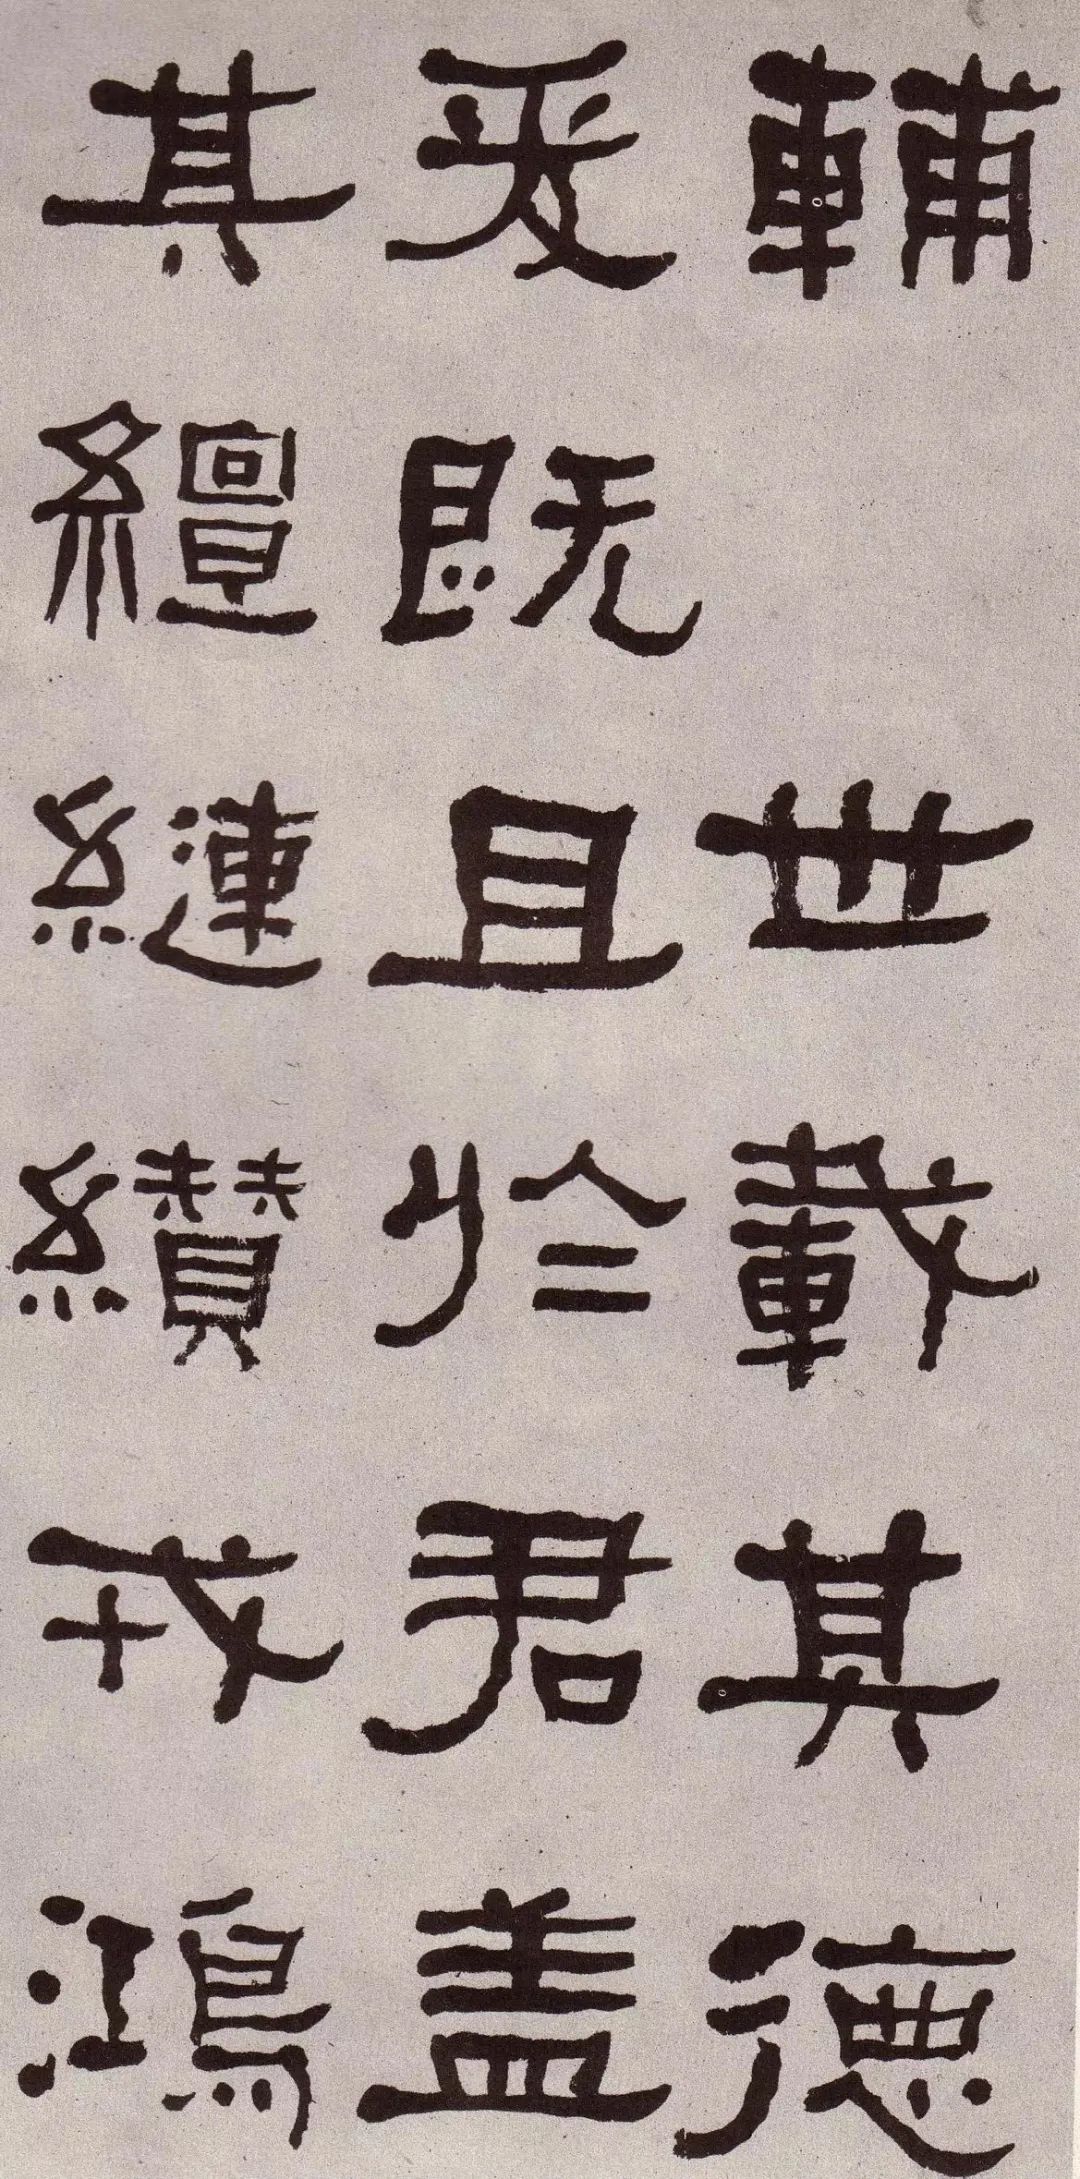 輔世載其德
爰既且於君盖
其繵縺纘戎鴻